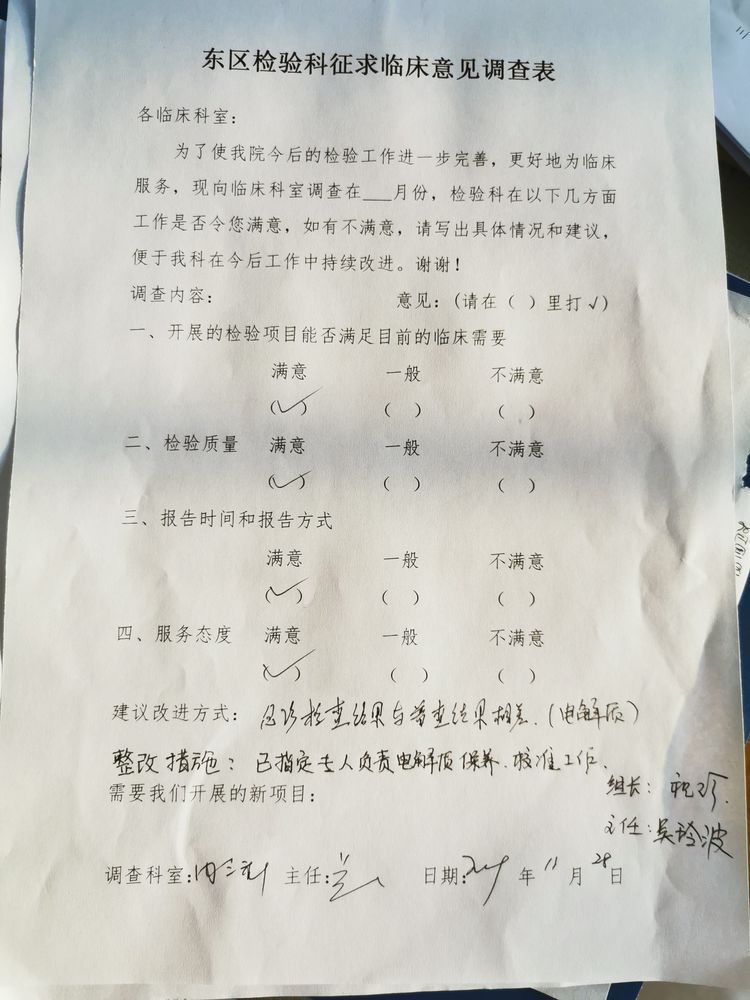 东区检验科征求临床意见调查表
各临床科室：
为了使我院今后的检验工作进一步完善，更好地为临床
服务，现向临床科室调查在___月份，检验科在以下几方面
工作是否令您满意，如有不满意，请写出具体情况和建议，
便于我科在今后工作中持续改进。谢谢！
调查内容： 意见：（请在（ ）里打√）
一、开展的检验项目能否满足目前的临床需要
满意 一般 不满意
（√） （ ） （ ）
二、检验质量 满意 一般 不满意
（√） （ ） （ ）
三、报告时间和报告方式
满意 一般 不满意
（√） （ ） （ ）
四、服务态度 满意 一般 不满意
（√） （ ） （ ）
建议改进方式：急诊检查结果与普查结果相差.（电解质）
整改措施：已指定专人负责电解质保养、校准工作.
需要我们开展的新项目：
组长：
主任：吴玲波
调查科室： 主任： 日期： 年 11 月 28 日